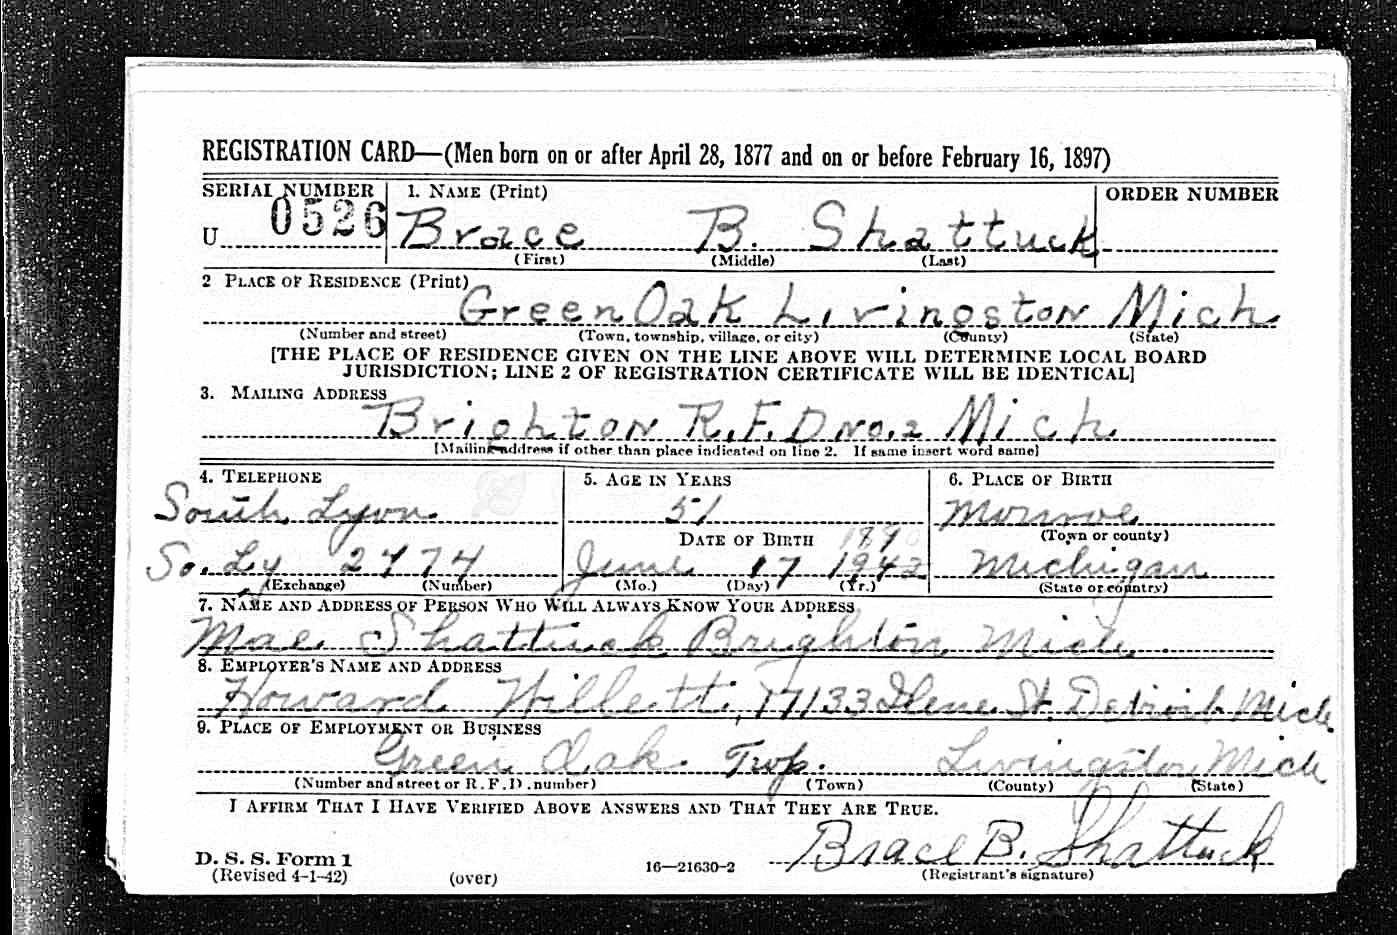 REGISTRATION CARD—(Men born on or after April 28, 1877 and on or before February 16, 1897)
SERIAL NUMBER 1. NAME (Print) ORDER NUMBER
U 0526 Brace B. Shattuck
(First) (Middle) (Last)
2 PLACE OF RESIDENCE (Print)
Green Oak Livingston Mich
(Number and street) (Town, township, village, or city) (County) (State)
[THE PLACE OF RESIDENCE GIVEN ON THE LINE ABOVE WILL DETERMINE LOCAL BOARD
JURISDICTION; LINE 2 OF REGISTRATION CERTIFICATE WILL BE IDENTICAL]
3. MAILING ADDRESS
Brighton R.F.D no. 2 Mich
[Mailing address if other than place indicated on line 2. If same insert word same]
4. TELEPHONE 5. AGE IN YEARS 6. PLACE OF BIRTH
South Lyon 51 Monroe
DATE OF BIRTH 189 (Town or county)
So. Ly 2474 June 17 1942 Michigan
(Exchange) (Number) (Mo.) (Day) (Yr.) (State or country)
7. NAME AND ADDRESS OF PERSON WHO WILL ALWAYS KNOW YOUR ADDRESS
Mae Shattuck Brighton Mich.
8. EMPLOYER'S NAME AND ADDRESS
Howard Willett, 17133 Ilene St. Detroit Mich.
9. PLACE OF EMPLOYMENT OR BUSINESS
Green Oak Twp. Livingston Mich
(Number and street or R. F. D. number) (Town) (County) (State)
I AFFIRM THAT I HAVE VERIFIED ABOVE ANSWERS AND THAT THEY ARE TRUE.
Brace B. Shattuck
D. S. S. Form 1
(Revised 4-1-42) (over) 16—21630-2 (Registrant's signature)